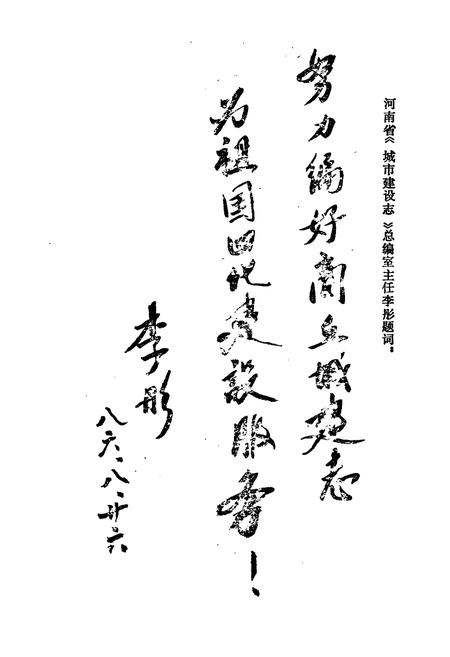 河南省《城市建设志》总编室主任李彤题词。
努力编好商丘城建志
为祖国四化建設服务！
李彤
八六、八、廿六